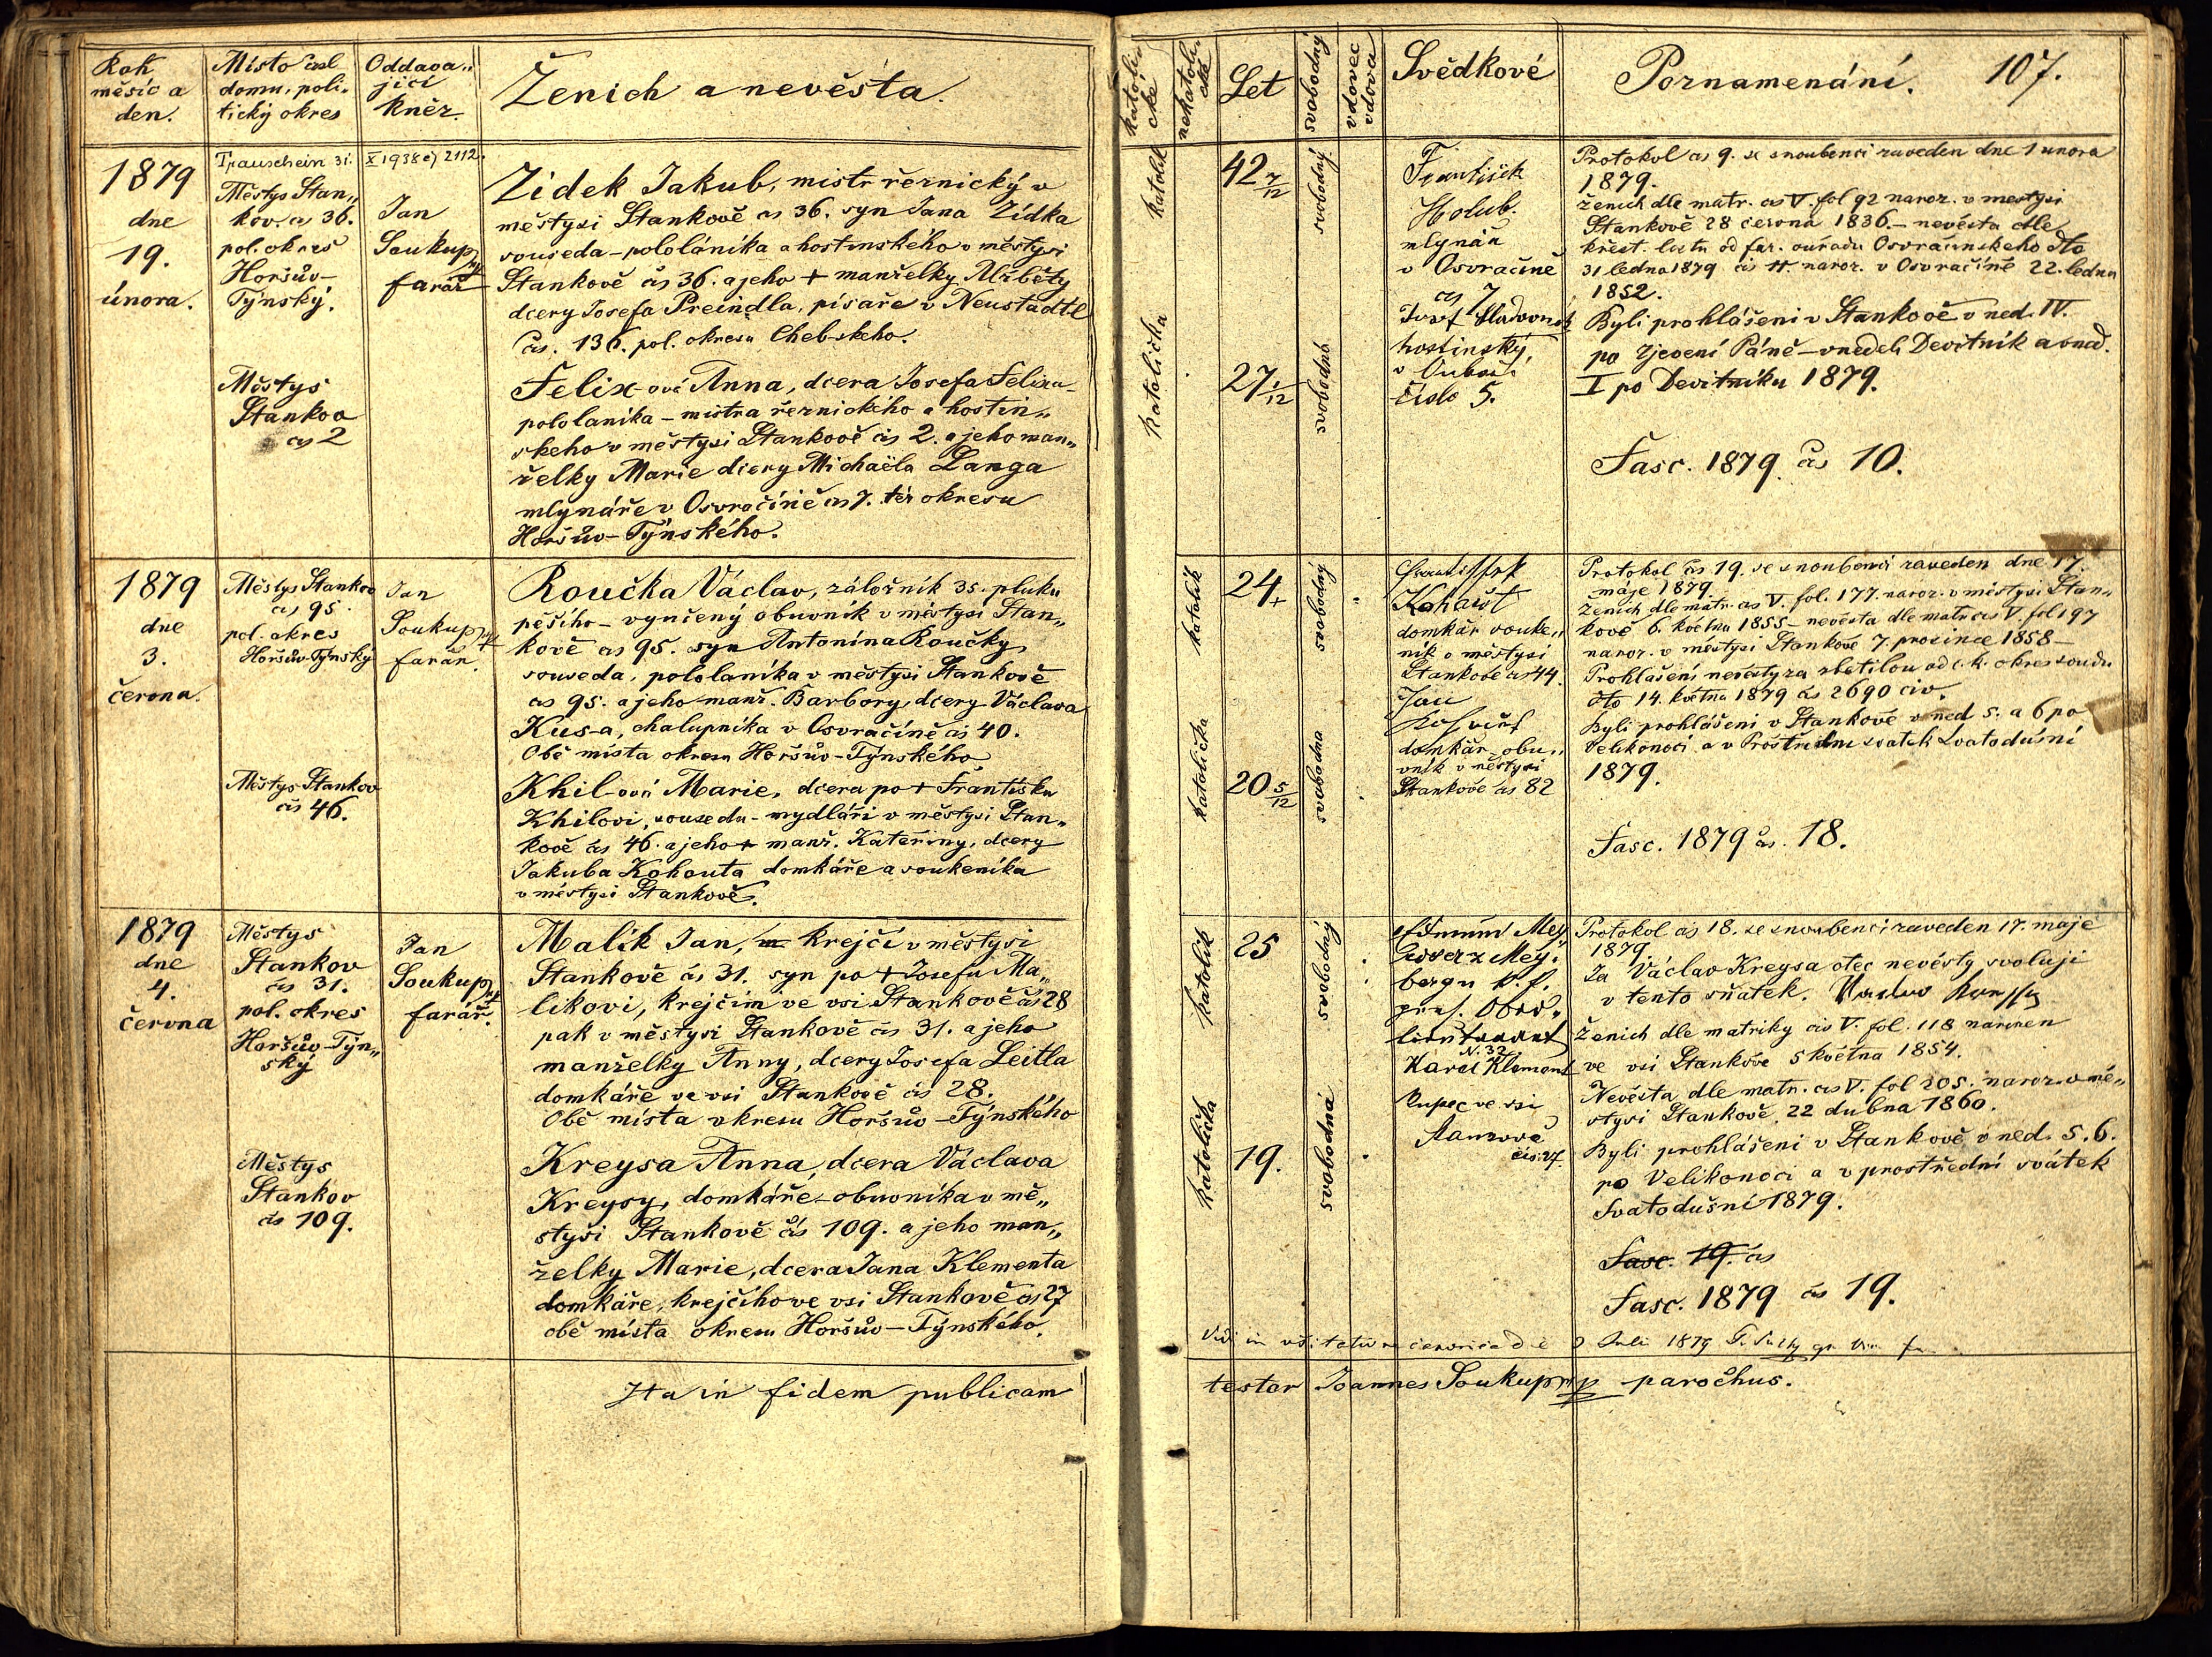 Rok
měsíc a
den.
Místo čísl
domu, poli„
tický okres
Oddava„
jící
kněz.
Ženich a nevěsta.
Trauschein 31. X 1938 čj 2112.
1879
dne
19.
února.
Městys Stan„
kov. čs 36.
pol. okres
Horšův-
Týnský.
Jan
Soukup
farář
Zídek Jakub, mistr řeznický v
městysi Stankově čs 36. syn Jana Zídka
souseda-pololáníka a hostinského v městysi
Stankově čs 36. a jeho + manželky Alžběty
dcery Josefa Preindla, písaře v Neustadtl
Čís. 136. pol. okresu Chebskeho.
Městys
Stankov
čs 2
Felix ová Anna, dcera Josefa Felixa
pololaníka - mistra řeznického a hostin„
skeho v městysi Stankově čís 2. a jeho man„
želky Marie dcery Michaëla Langa
mlynáře v Osvračíně čs 7. též okresu
Horšův-Týnského.
1879
dne
3.
června.
Městys Stankov
čs 95
pol. okres
Horšův-Týnský
Jan
Soukup
farář.
Roučka Václav, záložník 35. pluku
pěšího - vyučený obuvník v městysi Stan„
kově čs 95. syn Antonína Roučky,
souseda, pololaníka v městysi Stankově
čs 95. a jeho manž. Barbory, dcery Václava
Kus-a, chalupníka v Osvračíně čs 40.
Obě místa okresu Horšův-Týnského
Městys Stankov
čís 46.
Khil-ová Marie, dcera po + Františku
Khilovi, sousedu - mydláři v městysi Stan„
kově čs 46. a jeho + manž. Kateřiny, dcery
Jakuba Kohouta domkáře a soukeníka
v městysi Stankově.
1879
dne
4.
června
Městys
Stankov
čs 31.
pol. okres
Horšův-Týn„
ský
Jan
Soukup
farář.
Malík Jan, krejčí v městysi
Stankově čs 31. syn po + Josefu Ma„
likovi, krejčím ve vsi Stankově čs 28
pak v městysi Stankově čís 31. a jeho
manželky Anny, dcery Josefa Leitla
domkáře ve vsi Stankově čís 28.
Obě místa okresu Horšův-Týnského
Městys
Stankov
čís 109.
Kreysa Anna, dcera Václava
Kreysy, domkáře-obuvníka v mě„
stysi Stankově čs 109. a jeho man„
želky Marie, dcera Jana Klementa
domkáře, krejčího ve vsi Stankově čs 27
obě místa okresu Horšův-Týnského.
Ita in fidem publicam
katoli
cké
nekatoli
cké
Let
svobodný
vdovec
vdova
Svědkové
Poznamenání.
107.
katolík
42 7/12
svobodný
katolička
27 1/12
svobodná
František
Holub.
mlynář
v Osvračíně
čs 7
Josef
hostinský,
v
číslo 5.
Protokol čs 9. se snoubenci zaveden dne 1 unora
1879.
Ženich dle matr. čs V. fol 92 naroz. v mestysi
Stankově 28 června 1836. - nevěsta dle
křest. listu od far. ouřadu Osvračínského dto
31 ledna 1879 čís 11. naroz. v Osvračíně 22. ledna
1852.
Byli prohlášeni v Stankově v ned. IV.
po Zjevení Páně - v neděli Devítník a v ned.
I po Devítníku 1879.
Fasc. 1879. čís 10.
katolík
24
svobodný
katolička
20 5/12
svobodna
František
Kohout
domkář souke„
ník v městysi
Stankově čs 44.
Jan
domkář obu„
vník v městysi
Stankově čs 82
Protokol čs 19. se snoubenci zaveden dne 17.
máje 1879.
Ženich dle matr. čs V. fol. 177. naroz. v městysi Stan„
kově 6. května 1855 - nevěsta dle matr čs V. fol 197
naroz. v městysi Stankově 7. prosince 1858 -
Prohlášení nevěsty za zletilou od c. k. okres soudu
dto 14. května 1879 čs 2690 civ.
Byli prohlášeni v Stankově v ned 5. a 6 po
Velikonoci a v Prostřední svatek Svatodušní
1879.
Fasc. 1879 čs. 18.
katolík
25
svobodný
katolička
19.
svobodná
N. 32
Karel Klement
kupec ve vsi
Stankově
čís. 27.
Protokol čs 18. se snoubenci zaveden 17. maje
1879.
Ja Václav Kreysa otec nevěsty svoluji
v tento sňatek.
Ženich dle matriky čís V. fol. 118 narozen
ve vsi Stankově 5 května 1854.
Nevěsta dle matr. čs V. fol 205. naroz. v mě„
stysi Stankově 22 dubna 1860.
Byli prohlášeni v Stankově v ned. 5. 6.
po Velikonoci a v prostřední svátek
Svatodušní 1879.
Fasc. 19. čs
Fasc. 1879 čs 19.
Vidi in visitatione canonica die 2 Juli 1879
testor Joannes Soukup mp parochus.